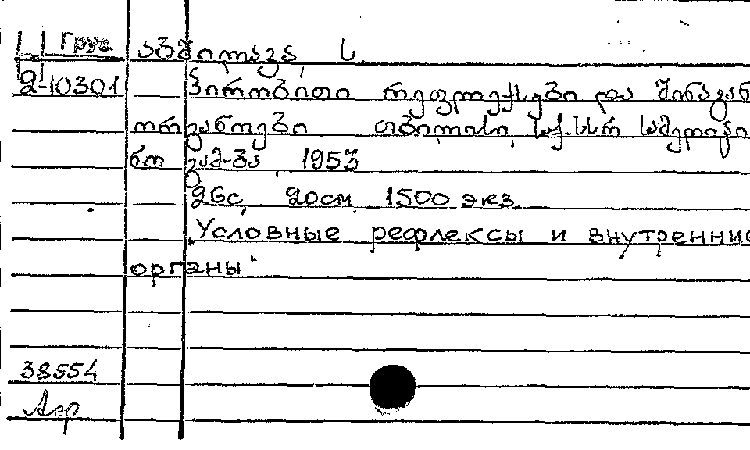 Груз
აბშილავა ს
2-10301 პირობითი რეფლექსები და შინაგან
ორგანოები თბილისი, საქ. სსრ სამედიცი
ნო გამ-ბა 1953
26с, 20см 1500 экз
"Условные рефлексы и внутренние
органы"
38554